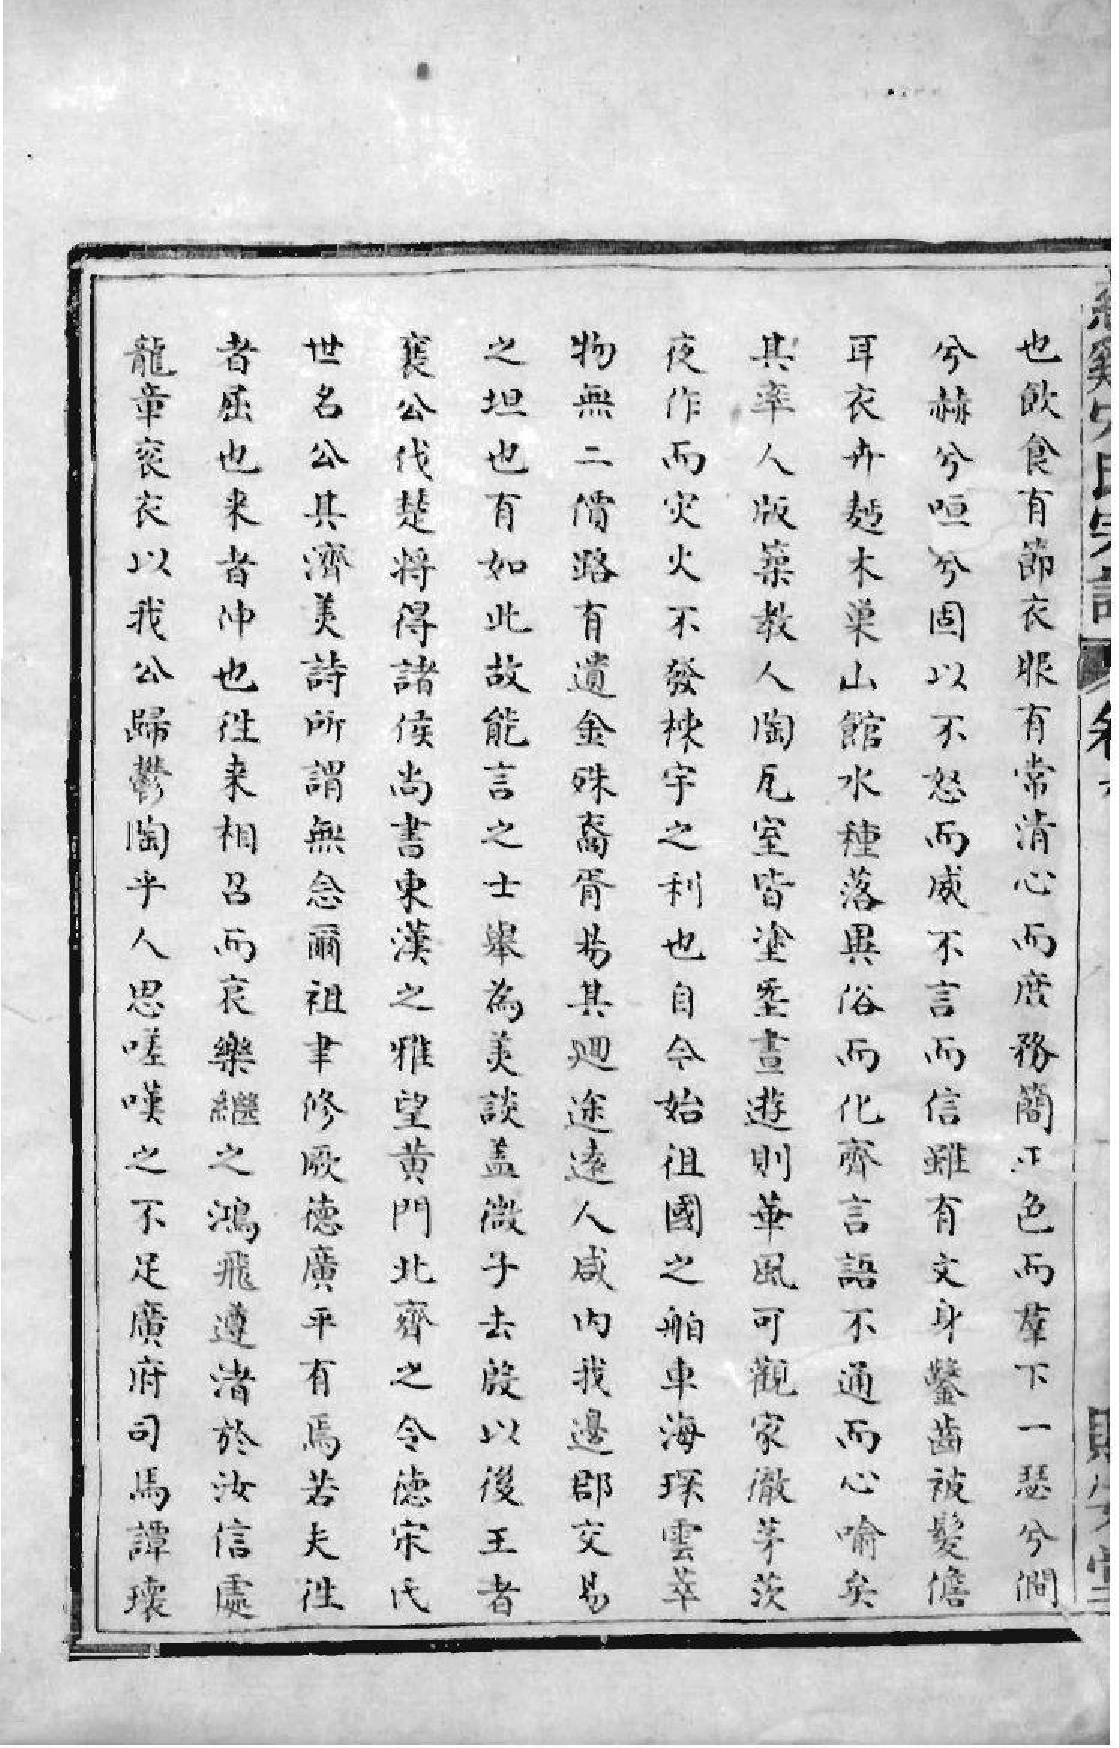 也飲食有節衣服有常清心而庶務簡正色而羣下一瑟兮僩
兮赫兮咺兮固以不怒而威不言而信雖有文身鑿齒被髮儋
耳衣卉麪木巢山館水種落異俗而化齊言語不通而心喻矣
其率人版築教人陶瓦室皆塗塈晝遊則華風可觀家撤茅茨
夜作而灾火不發棟宇之利也自今始祖國之舶車海琛雲萃
物無二價路有遺金殊裔胥易其迴途遠人咸內我邊郡交易
之坦也有如此故能言之士舉為美談盖微子去殷以後王者
襄公伐楚將得諸侯尚書東漢之雅望黃門北齊之令德宋氏
世名公其濟美詩所謂無念爾祖聿修厥德廣平有焉若夫徃
者屈也来者伸也徃来相召而哀樂繼之鴻飛遵渚於汝信處
龍章衮衣以我公歸鬱陶乎人思嗟嘆之不足廣府司馬譚瓌